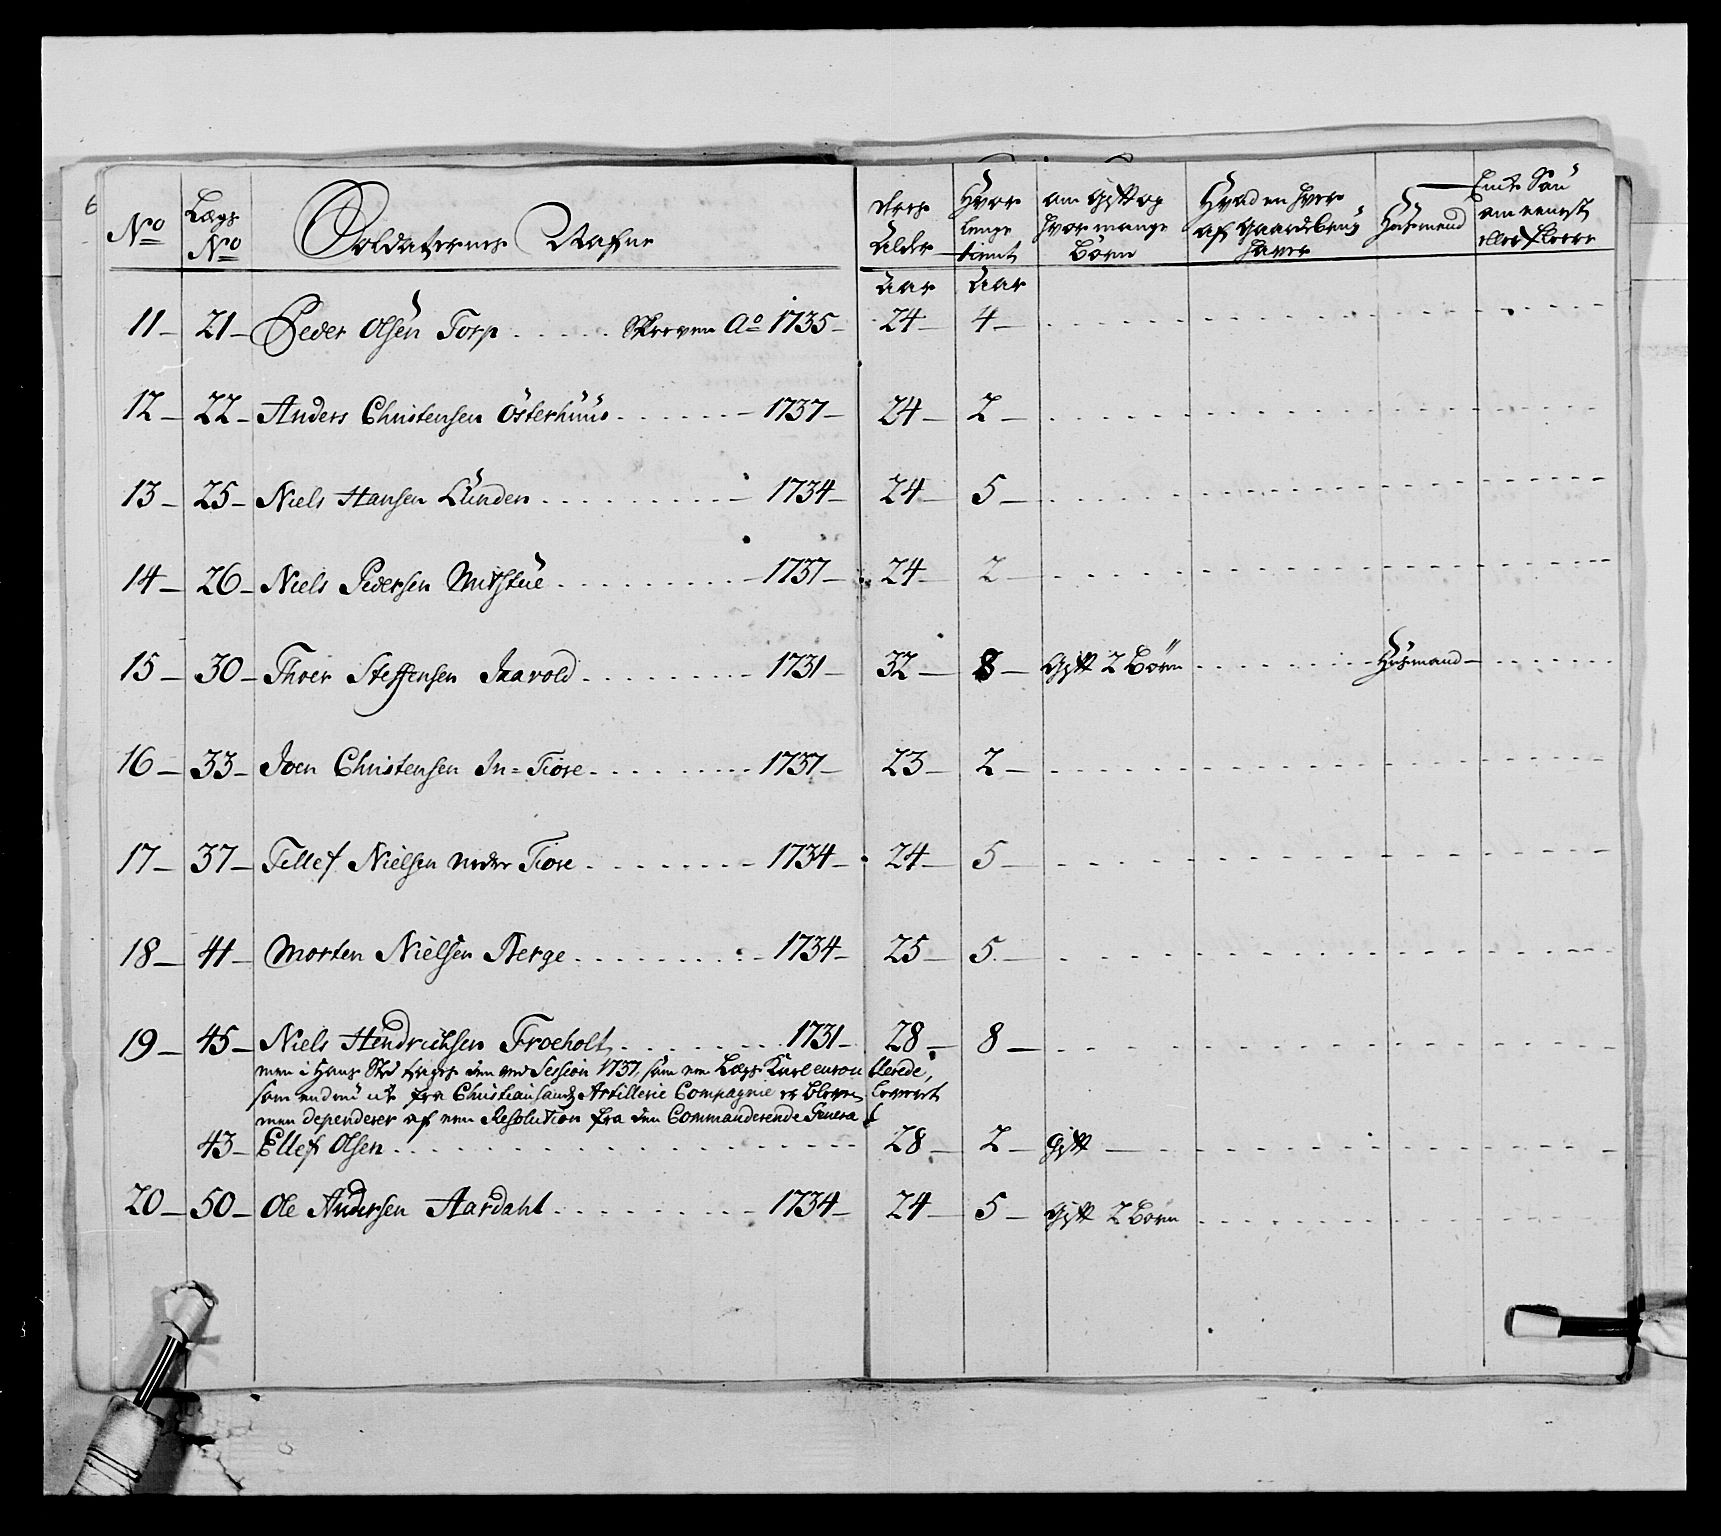 6
No Lægs No Soldaternes Nafne deres Alder Hvor lenge tient om Gift og hvor mange Børn Hvad en hver af Gaardebrug haver Huusmend Enke Søn om eeneste eller fleere
Aar Aar
11 – 21 – Peder Olsen Torp . . . . . Skreven Ao 1735 – 24 – 4 –
12 – 22 – Anders Christensen Österhuus . . . . . . – 1737 – 24 – 2 –
13 – 25 – Niels Hansen Lunden . . . . . . . . . – 1734 – 24 – 5 –
14 – 26 – Niels Pedersen Mitstue . . . . . . . . – 1737 – 24 – 2 –
15 – 30 – Thoer Steffensen Jaavold . . . . . . . – 1731 – 32 – 8 – Gift 2 Børn . . . . . . . Huusmand –
16 – 33 – Joen Christensen In=Tiore . . . . . . . – 1737 – 23 – 2 –
17 – 37 – Tellef Nielsen neder Tiore . . . . . . . – 1734 – 24 – 5 –
18 – 41 – Morten Nielsen Berge . . . . . . . . . – 1734 – 25 – 5 –
19 – 45 – Niels Hendrichsen Froeholt . . . . . . . 1731 – 28 – 8 –
men i Hans Sted tages den ved Session 1737, som en Lægs Karl enrollerede,
som endnu ei fra Christiansands Artillerie Compagnie er bleven leveret
men dependerer af en Resolution fra den Commanderende General
43 – Ellef Olsen . . . . . . . . . . . . . . . . 28 – 2 – Gift –
20 – 50 – Ole Andersen Aardahl . . . . . . . . . – 1734 – 24 – 5 – Gift 2 Børn